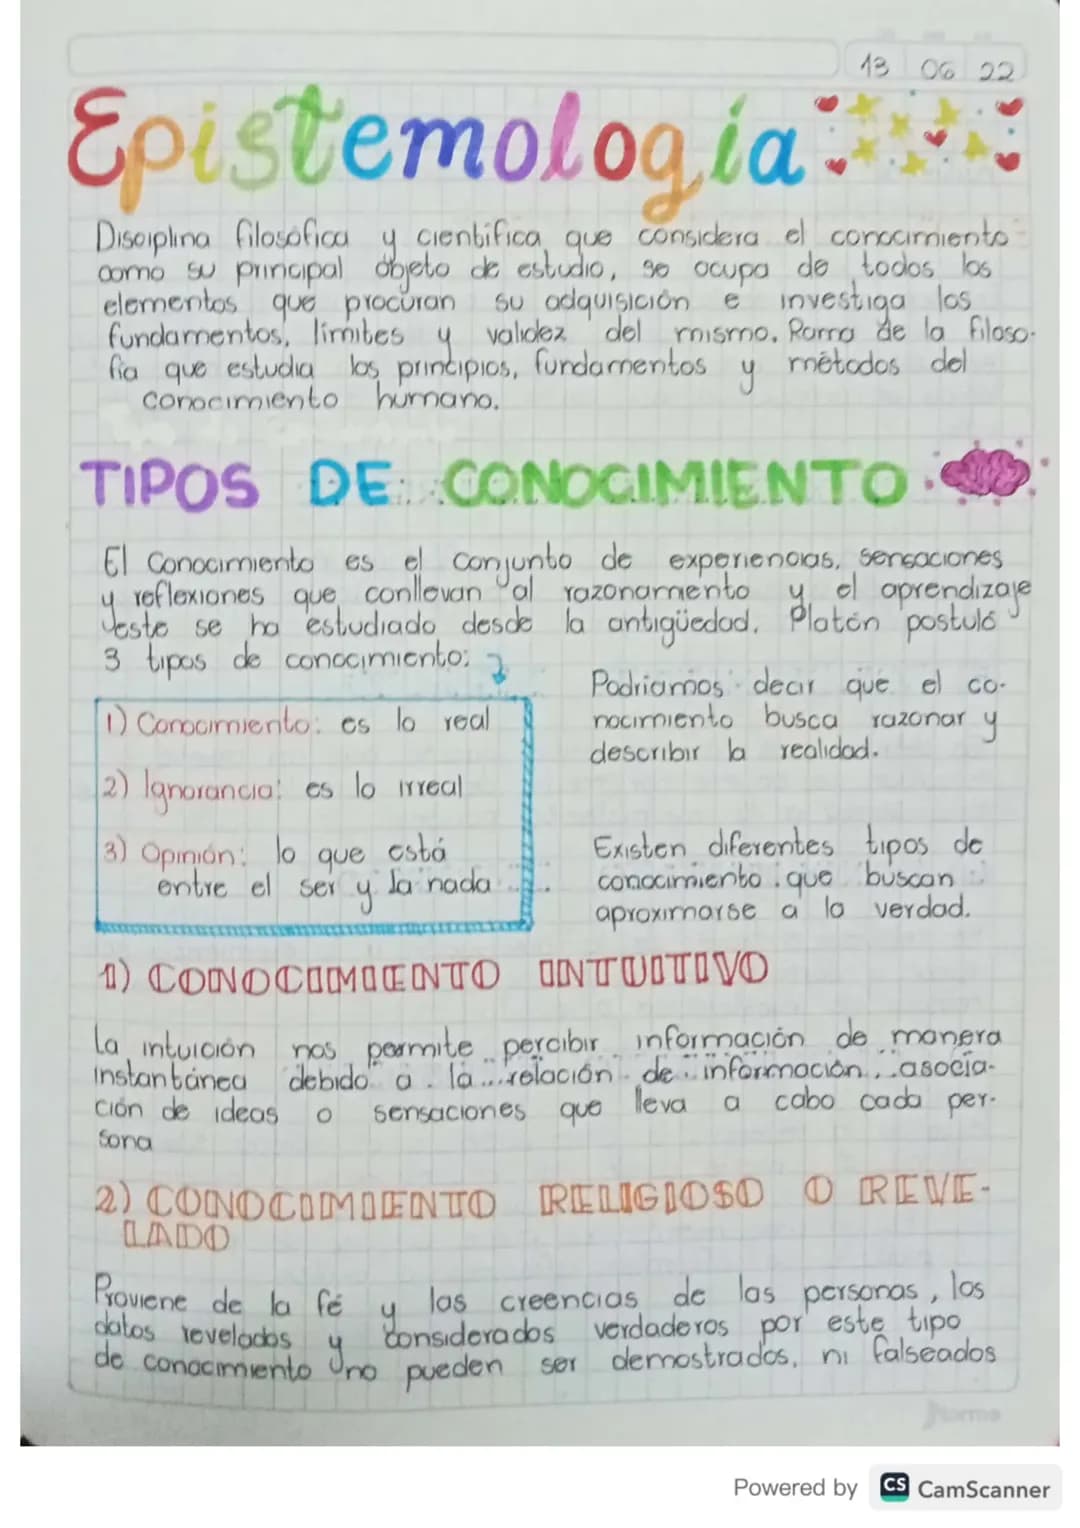 13 06 22
Epistemología
Disciplina filosófica y científica que considera el conocimiento
como su principal objeto de estudio, se ocupa de todos los
elementos que procuran su adquisición e investiga los
fundamentos, límites y validez del mismo. Rama de la filoso-
fía que estudia los principios, fundamentos y métodos del
conocimiento humano.
TIPOS DE CONOCIMIENTO
El Conocimiento es el conjunto de experiencias, sensaciones
y reflexiones que conllevan al razonamiento y el aprendizaje
y este se ha estudiado desde la antigüedad. Platón postuló
3 tipos de conocimiento:
1) Conocimiento: es lo real
2) Ignorancia: es lo irreal
3) Opinión: lo que está
entre el ser y la nada
Podríamos decir que el co-
nocimiento busca razonar y
describir la realidad.
Existen diferentes tipos de
conocimiento que buscan
aproximarse a la verdad.
1) CONOCIMIENTO INTUITIVO
La intuición nos permite percibir información de manera
instantánea debido a la relación de información, asocia-
ción de ideas o sensaciones que lleva a cabo cada per-
sona
2) CONOCIMIENTO RELIGIOSO O REVE-
LADO
Proviene de la fé y las creencias de las personas, los
datos revelados y considerados verdaderos por este tipo
de conocimiento no pueden ser demostrados, ni falseados
Norma
Powered by CS CamScanner